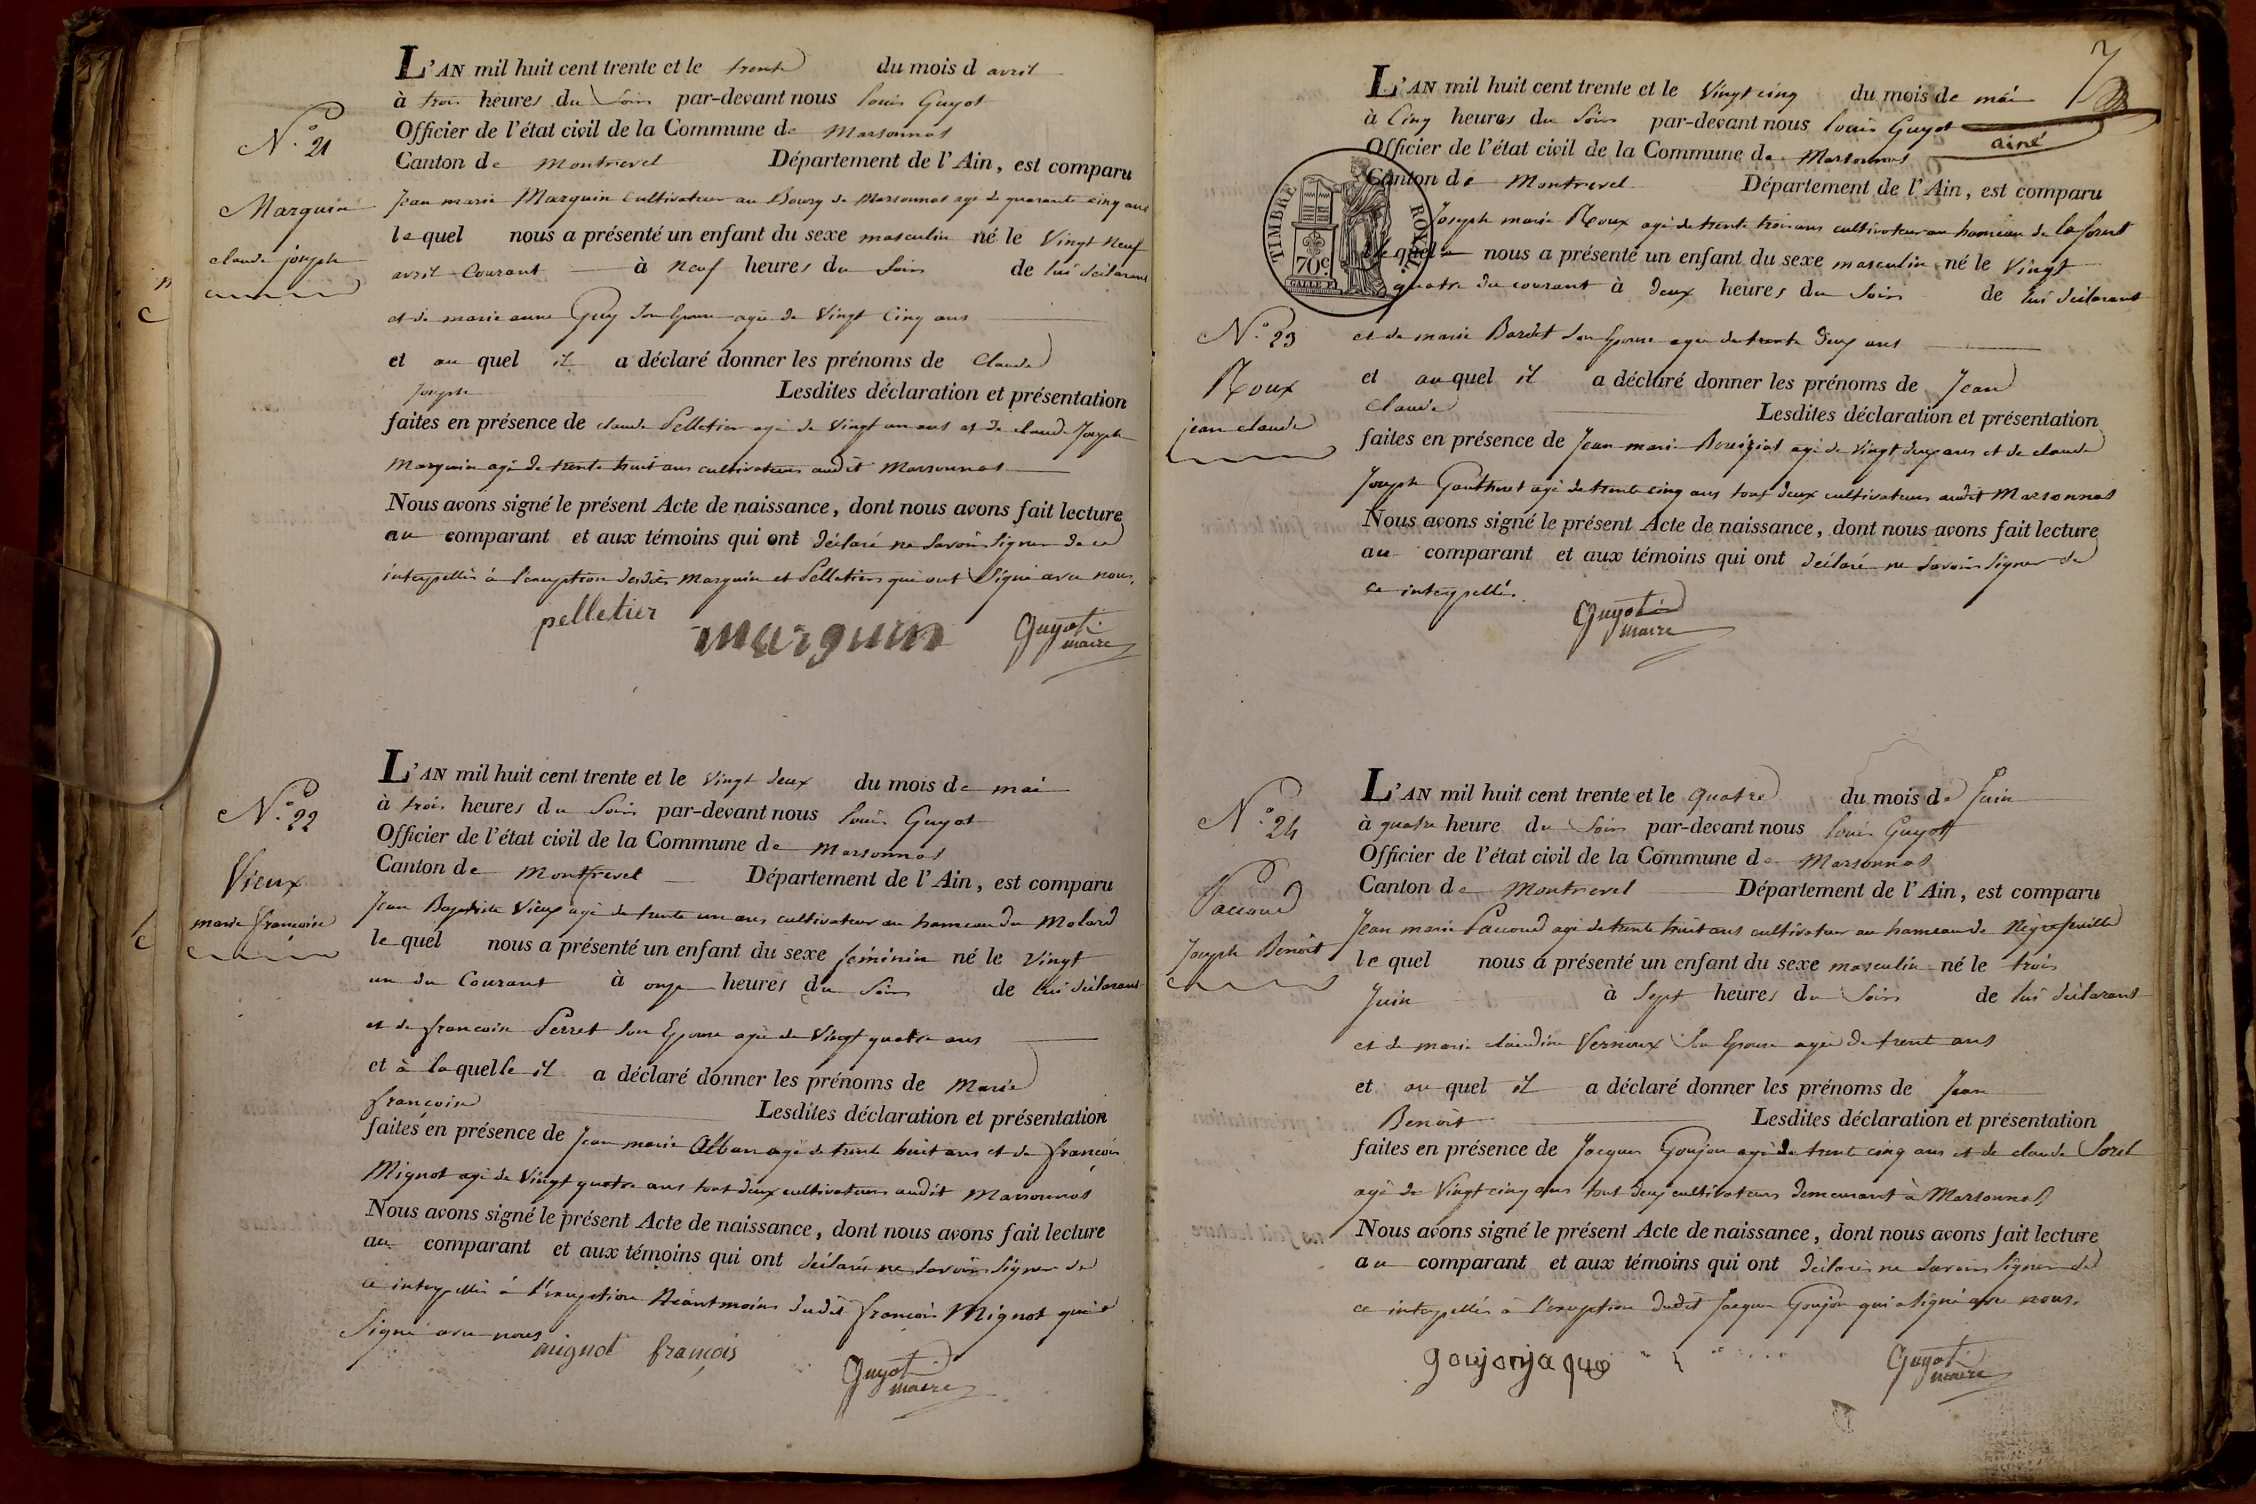 L'AN mil huit cent trente et le trente du mois d avril
à trois heures du Soir par-devant nous louis Guyot
Officier de l'état civil de la Commune de Marsonnas
Canton de Montrevel Département de l'Ain, est comparu
N.° 21
Marguin
claude joseph
Jean marie Marguin cultivateur au Bourg de Marsonnas agé de quarante cinq ans
lequel nous a présenté un enfant du sexe masculin né le Vingt neuf
avril Courant à neuf heures du Soir de lui déclarant
et de marie anne Guy son Epouse agée de Vingt Cinq ans
et au quel il a déclaré donner les prénoms de Claude
Joseph Lesdites déclaration et présentation
faites en présence de claude Pelletier agé de Vingt un ans et de claude Joseph
Marguin agé de trente huit ans cultivateurs audit Marsonnas
Nous avons signé le présent Acte de naissance, dont nous avons fait lecture
au comparant et aux témoins qui ont déclaré ne Savoir Signer de ce
interpellés à l'exception desdits Marguin et Pelletier qui ont Signé avec nous.
pelletier marguin Guyot
maire
N.° 22
Vieux
marie françoise
L'AN mil huit cent trente et le Vingt deux du mois de mai
à trois heures du Soir par-devant nous louis Guyot
Officier de l'état civil de la Commune de Marsonnas
Canton de Montrevel Département de l'Ain, est comparu
Jean Baptiste Vieux agé de trente un ans cultivateur au hameau du Molard
lequel nous a présenté un enfant du sexe féminin né le Vingt
un du Courant à onze heures du Soir de lui déclarant
et de françoise Perret son Epouse agée de Vingt quatre ans
et à laquelle il a déclaré donner les prénoms de Marie
françoise Lesdites déclaration et présentation
faites en présence de Jean marie Alban agé de trente huit ans et de françois
Mignot agé de Vingt quatre ans tout deux cultivateurs audit Marsonnas
Nous avons signé le présent Acte de naissance, dont nous avons fait lecture
au comparant et aux témoins qui ont déclaré ne Savoir Signer de
ce interpellés à l'exception Néantmoins dudit françois Mignot qui a
Signé avec nous
mignot françois Guyot
maire
7
L'AN mil huit cent trente et le Vingt cinq du mois de mai
à Cinq heures du Soir par-devant nous louis Guyot
ainé
Officier de l'état civil de la Commune de Marsonnas
Canton de Montrevel Département de l'Ain, est comparu
TIMBRE ROYAL
70c
Joseph marie Roux agé de trente trois ans cultivateur au hameau de laforet
lequel nous a présenté un enfant du sexe masculin né le Vingt
quatre du courant à deux heures du Soir de lui déclarant
N.° 23
Roux
jean claude
et de marie Bardet son Epouse agée de trente deux ans
et auquel il a déclaré donner les prénoms de Jean
Claude Lesdites déclaration et présentation
faites en présence de Jean marie agé de Vingt deux ans et de claude
Joseph Gauthret agé de trente cinq ans tout deux cultivateurs audit Marsonnas
Nous avons signé le présent Acte de naissance, dont nous avons fait lecture
au comparant et aux témoins qui ont déclaré ne Savoir Signer de
ce interpellés.
Guyot
maire
N.° 24
Paccoud
Joseph Benoit
L'AN mil huit cent trente et le quatre du mois de Juin
à quatre heure du Soir par-devant nous louis Guyot
Officier de l'état civil de la Commune de Marsonnas
Canton de Montrevel Département de l'Ain, est comparu
Jean marie Paccoud agé de trente huit ans cultivateur au hameau de Négrefeuille
lequel nous a présenté un enfant du sexe masculin né le trois
Juin à Sept heures du Soir de lui déclarant
et de marie claudine Vernoux Son Epouse agée de trent ans
et au quel il a déclaré donner les prénoms de Jean
Benoit Lesdites déclaration et présentation
faites en présence de Jacques Goujon agé de trente cinq ans et de claude Sorel
agé de Vingt cinq ans tout deux cultivateurs demeurant à Marsonnas
Nous avons signé le présent Acte de naissance, dont nous avons fait lecture
au comparant et aux témoins qui ont déclaré ne Savoir Signer de
ce interpellés à l'exception dudit Jacques Goujon qui a Signé avec nous.
goujonjaque Guyot
maire